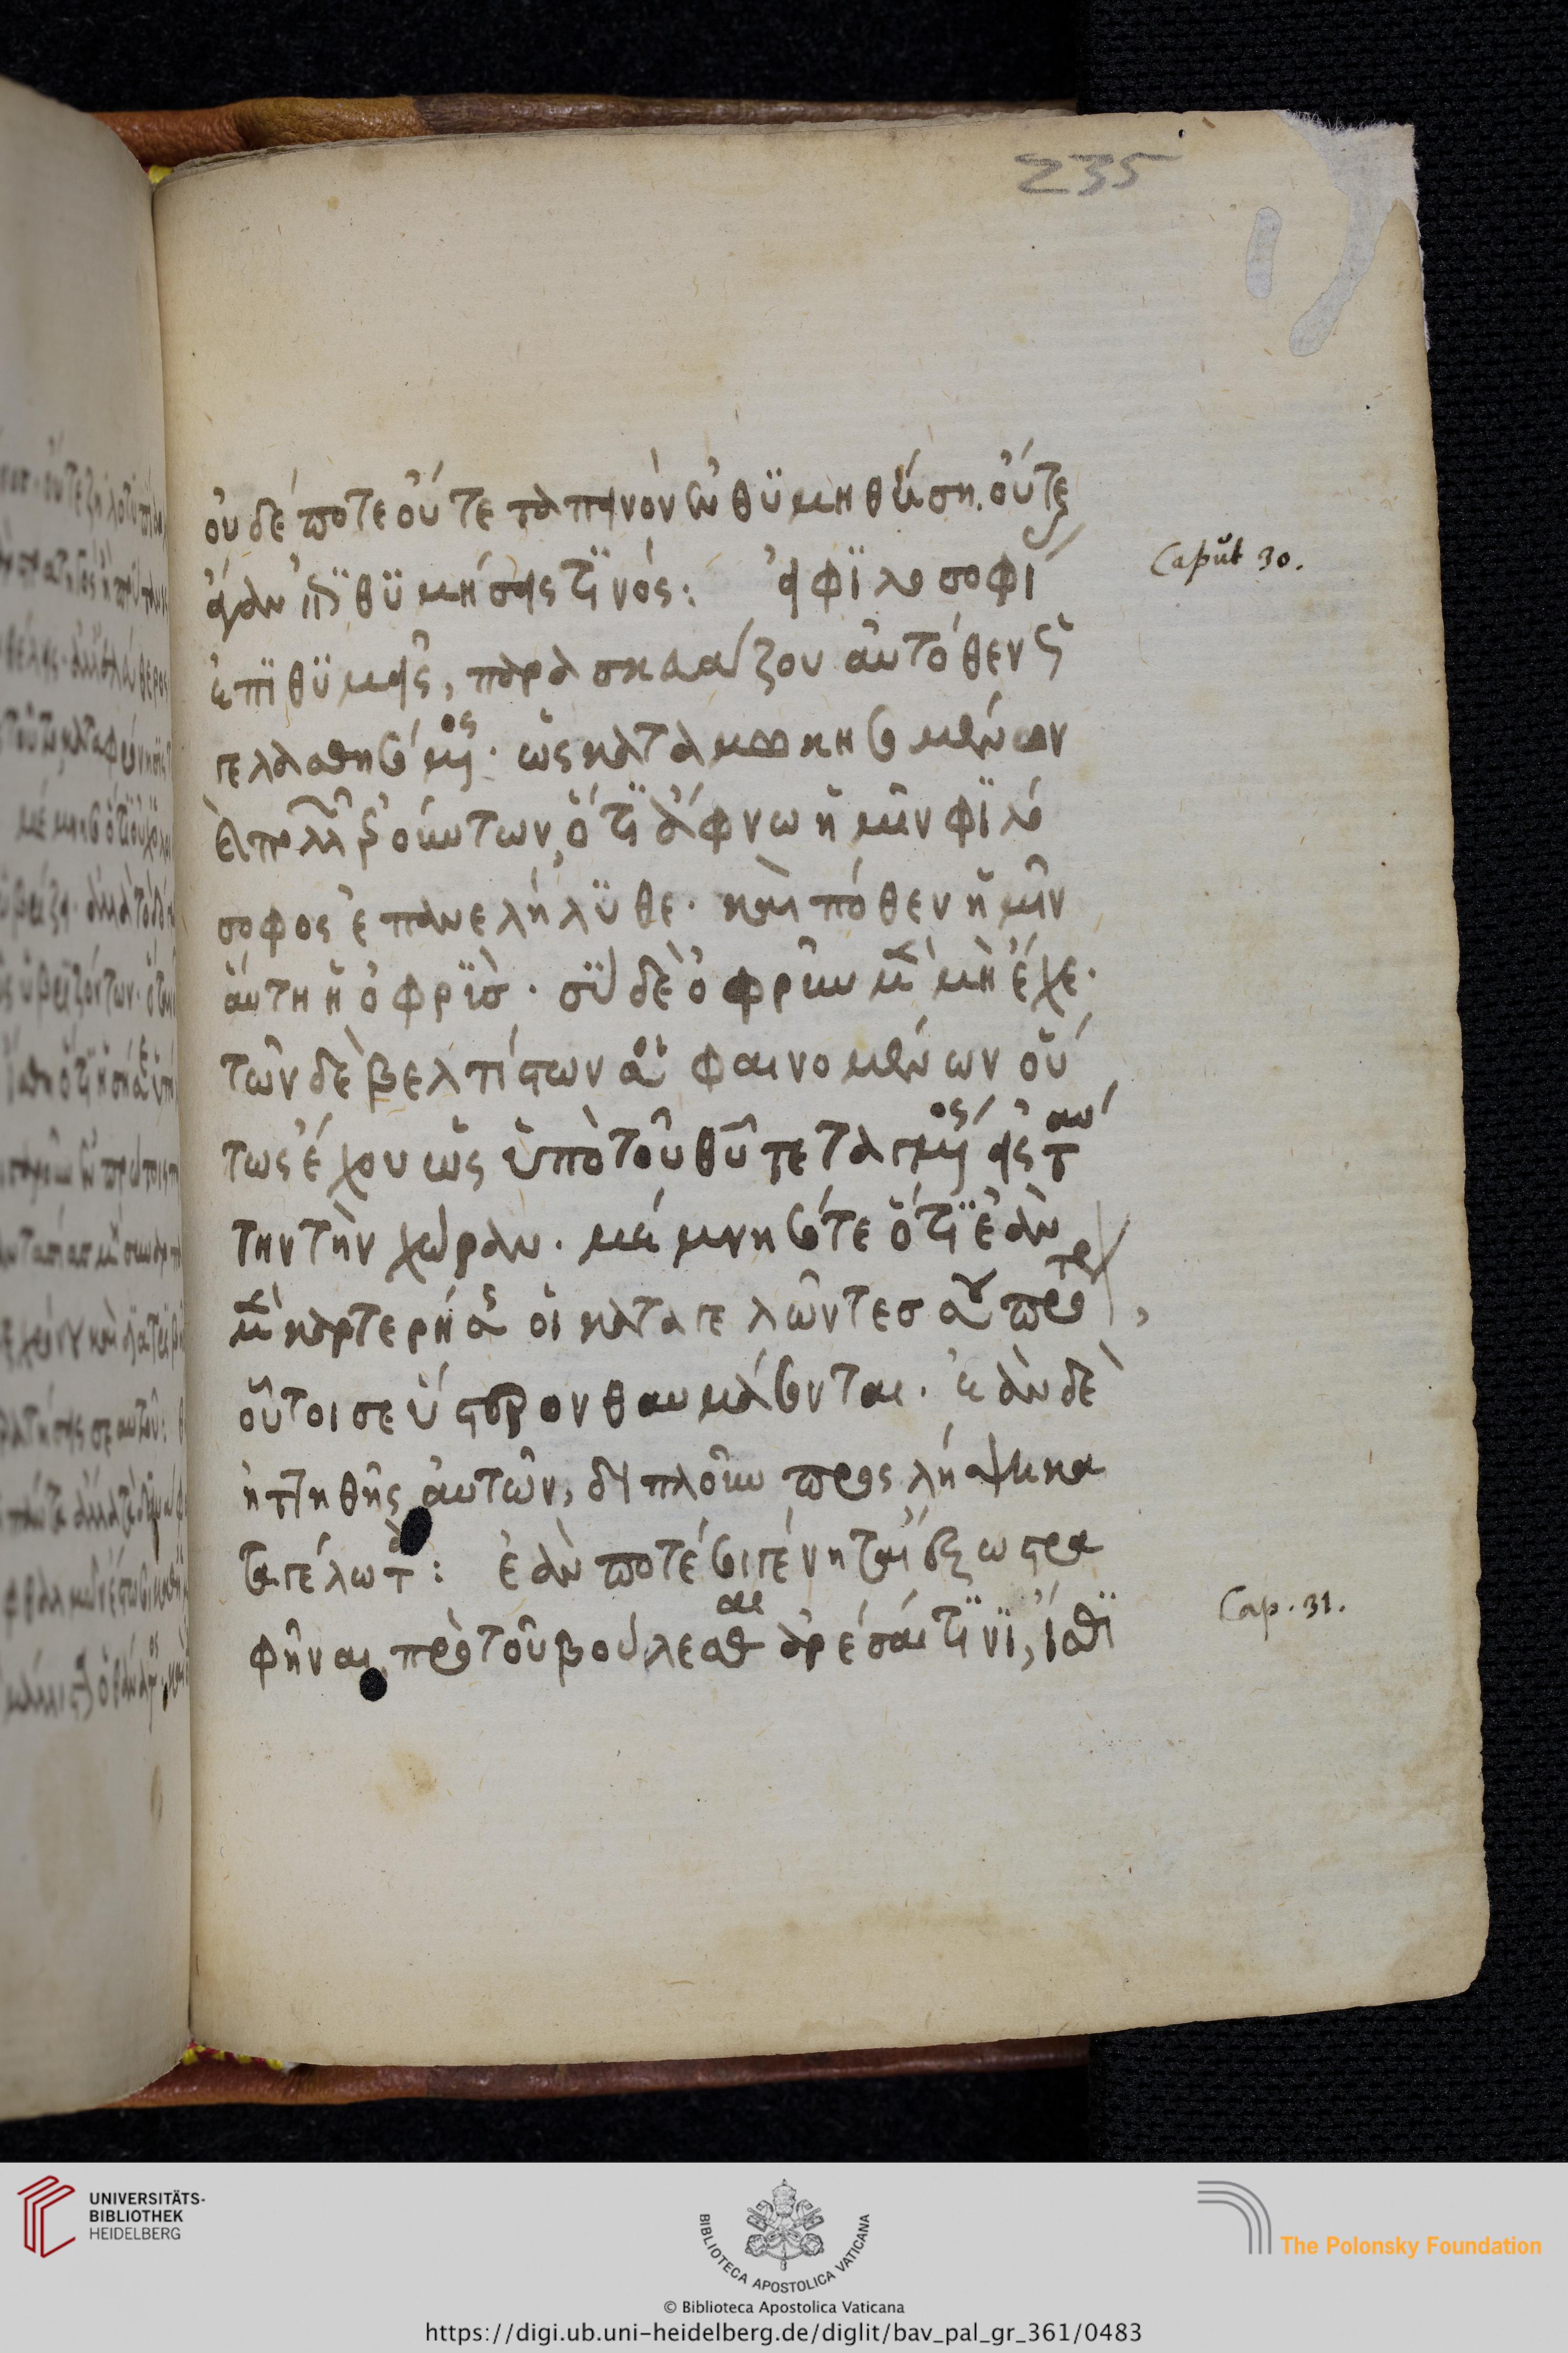 οὐδέποτε οὔτε ταπεινὸν ἐνθϋμηθήση. οὔτε
ἄγαν ἐπϊθϋμήσεις τϊνός: εἰ φϊλοσοφί
ἐπϊθϋμεῖς, παρασκευάζου αὐτόθεν
γελασθησόμενος. ὡς καταμωκησομένων
πολλῶν ἐρούντων, ὅτϊ ἄφνω ἡμῖν φϊλό
σοφος ἐπανελήλϋθε. καὶ πόθεν ἡμῖν
ἅυτη ἡ ὀφρϊς. σϋ δὲ ὀφρῦν μὲν μὴ ἔχε.
τῶν δὲ βελτίστων σοι φαινομένων οὕ
τως ἔχου ὡς ὑπὸ τοῦ θυ τεταγμένος εἰς ταύ
την τὴν χώραν. μέμνησό τε ὅτϊ ἐὰν
μὲν καρτερήσης οἱ καταγελῶντες σου πρότερ,
οὗτοι σε ὕστερον θαυμάσονται. ἐὰν δὲ
ἡττηθῆς ἀυτῶν, διπλοῦν προσλήψη κα
ταγέλωτα: ἐὰν ποτέ σοι γένηται ἔξω στρα
φῆναι, πρὸ τοῦ βούλεσθαι ἀρέσαι τϊνϊ, ἴσθϊ
Caput 30.
Cap. 31.
235
UNIVERSITÄTS-
BIBLIOTHEK
HEIDELBERG
BIBLIOTECA APOSTOLICA VATICANA
The Polonsky Foundation
© Biblioteca Apostolica Vaticana
https://digi.ub.uni-heidelberg.de/diglit/bav_pal_gr_361/0483